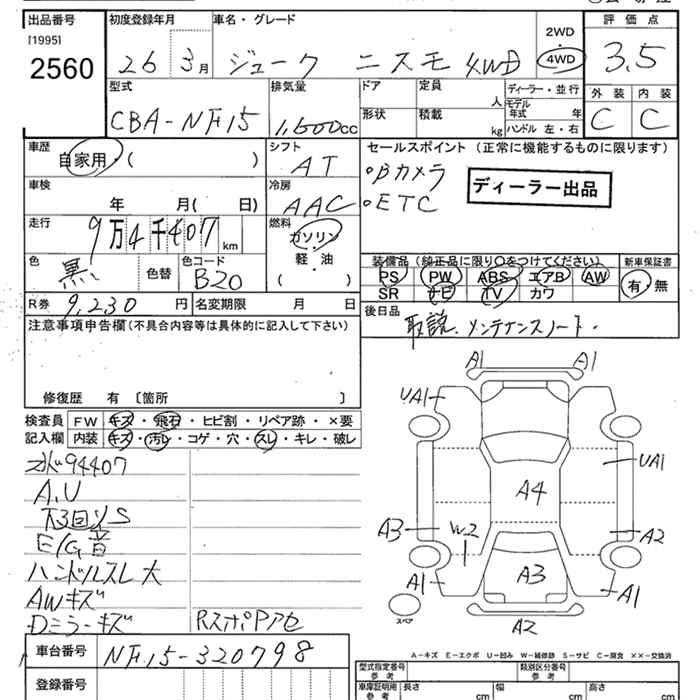 出品番号 初度登録年月 車名・グレード 評価点
[1995] 2WD
2560 26 3月 ジューク ニスモ 4WD 4WD 3.5
型式 排気量 ドア 定員 ディーラー・並行 外装 内装
人 モデル年式 年
CBA-NF15 1,600cc 形状 積載 kg ハンドル 左・右 C C
車歴 シフト セールスポイント (正常に機能するものに限ります)
自家用・( ) AT ・Bカメラ
車検 冷房 ・ETC ディーラー出品
年 月( 日) AAC
走行 燃料
9万4千407km ガソリン 装備品 (純正品に限り○をつけてください) 新車保証書
色 色コード 軽・油 PS PW ABS エアB AW 有・無
黒 色替 B20 ( ) SR ナビ TV カワ
R券 9,230円 名変期限 月 日 後日品
注意事項申告欄(不具合内容等は具体的に記入して下さい) 取説、メンテナンスノート.
修復歴 有 〔箇所 〕
検査員 FW キズ・飛石・ヒビ割・リペア跡・×要
記入欄 内装 キズ・汚レ・コゲ・穴・スレ・キレ・破レ
A1 A1
UA1
UA1
A4
A3 W2 A2
A1 A3 A1
スペア
A2
94407
A,U
下回りS
E/G音
ハンドルスレ大
AWキズ
Dミラーキズ
車台番号 NF15-320798
登録番号
A-キズ E-エクボ U-凹 W-補修跡 S-サビ C-腐食 ××-交換済
型式指定番号 参考 類別区分番号 参考
車庫証明用 参考 長さ cm 幅 cm 高さ cm